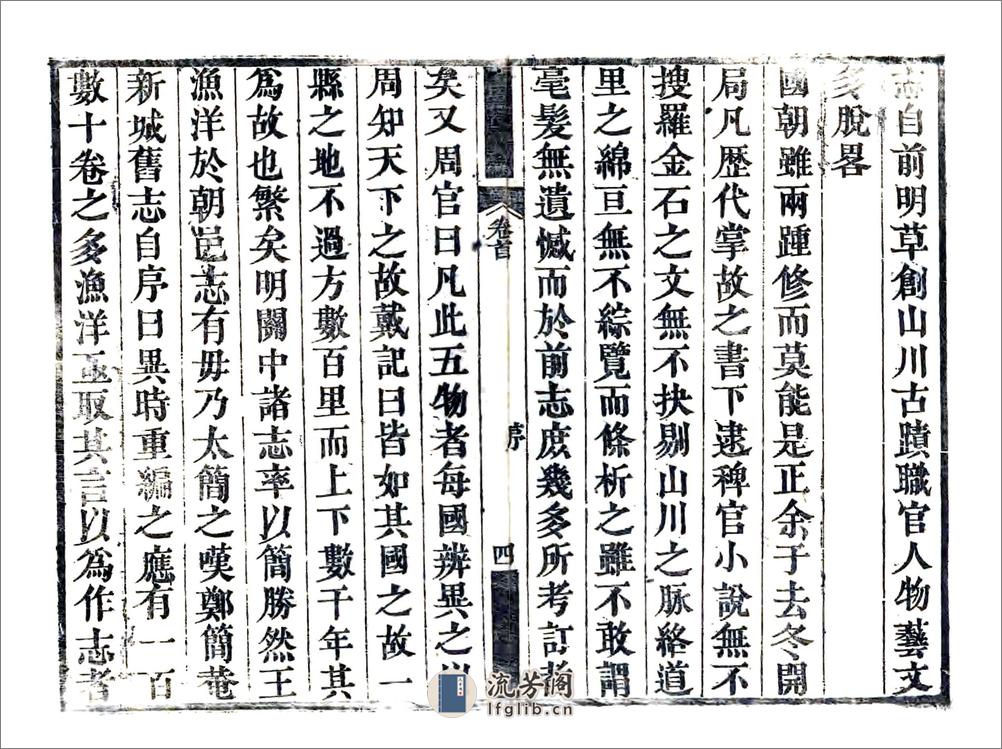 志自前明草創山川古蹟職官人物藝文
多脫畧
國朝雖兩踵修而莫能是正余于去冬開
局凡歷代掌故之書下逮稗官小說無不
搜羅金石之文無不抉剔山川之脉絡道
里之綿亘無不綜覽而條析之雖不敢謂
毫髮無遺憾而於前志庶幾多所考訂者
卷首
序
四
矣又周官曰凡此五物者每國辨異之以
周知天下之故戴記曰皆如其國之故一
縣之地不過方數百里而上下數千年其
為故也繁矣明關中諸志率以簡勝然王
漁洋於朝邑志有毋乃太簡之嘆鄭簡菴
新城舊志自序曰異時重編之應有一百
數十卷之多漁洋亟取其言以為作志者
流芳阁
lfglib.cn